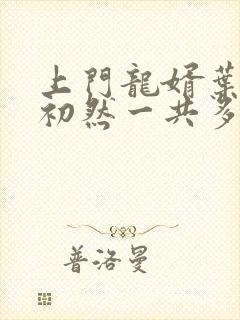 上門龍婿葉
初然一共多
普洛曼